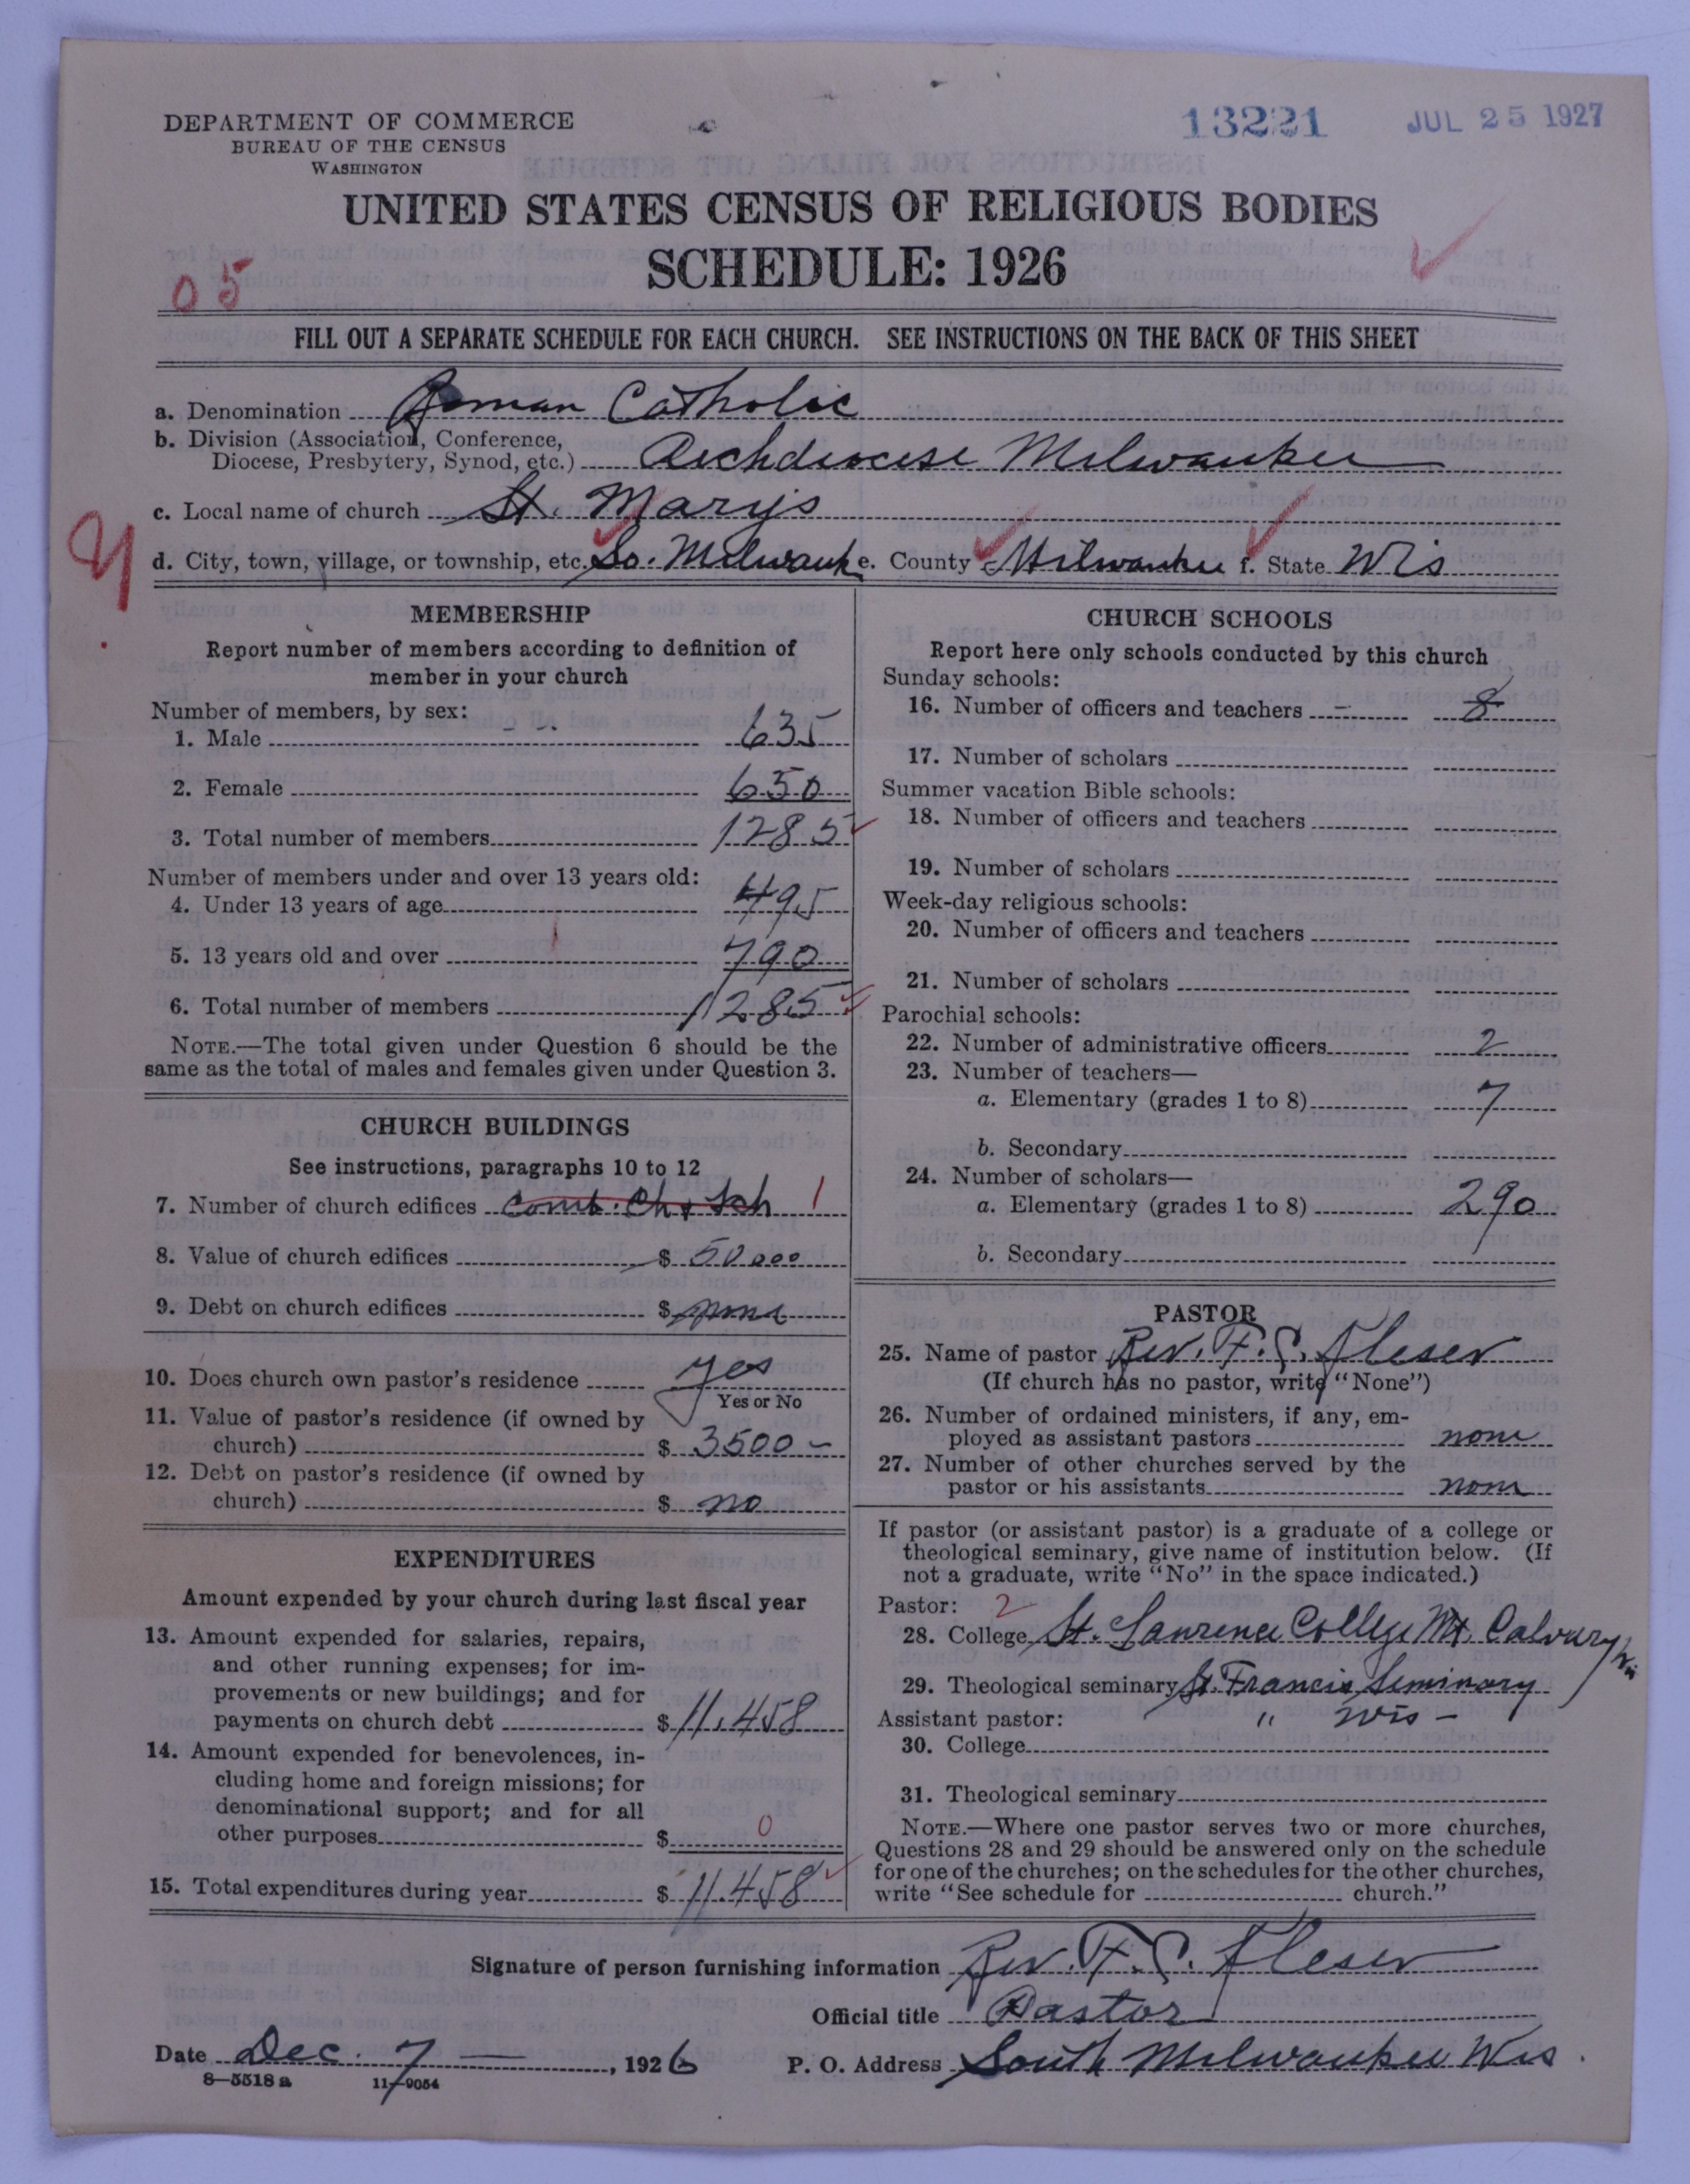 13221 JUL 25 1927
DEPARTMENT OF COMMERCE
BUREAU OF THE CENSUS
WASHINGTON
UNITED STATES CENSUS OF RELIGIOUS BODIES
SCHEDULE: 1926
05
FILL OUT A SEPARATE SCHEDULE FOR EACH CHURCH. SEE INSTRUCTIONS ON THE BACK OF THIS SHEET
a. Denomination Roman Catholic
b. Division (Association, Conference,
Diocese, Presbytery, Synod, etc.) Archdiocese Milwaukee
c. Local name of church St. Marys
d. City, town, village, or township, etc. So. Milwauke e. County Milwaukee f. State Wis
MEMBERSHIP
Report number of members according to definition of
member in your church
Number of members, by sex:
1. Male 635
2. Female 650
3. Total number of members 1285
Number of members under and over 13 years old:
4. Under 13 years of age 495
5. 13 years old and over 790
6. Total number of members 1285
NOTE.—The total given under Question 6 should be the
same as the total of males and females given under Question 3.
CHURCH BUILDINGS
See instructions, paragraphs 10 to 12
7. Number of church edifices Comb. Ch & Sch 1
8. Value of church edifices $ 50000
9. Debt on church edifices $ none
10. Does church own pastor's residence yes
Yes or No
11. Value of pastor's residence (if owned by
church) $ 3500 -
12. Debt on pastor's residence (if owned by
church) $ no
EXPENDITURES
Amount expended by your church during last fiscal year
13. Amount expended for salaries, repairs,
and other running expenses; for im-
provements or new buildings; and for
payments on church debt $ 11,458
14. Amount expended for benevolences, in-
cluding home and foreign missions; for
denominational support; and for all
other purposes $ 0
15. Total expenditures during year $ 11.458
CHURCH SCHOOLS
Report here only schools conducted by this church
Sunday schools:
16. Number of officers and teachers 8
17. Number of scholars
Summer vacation Bible schools:
18. Number of officers and teachers
19. Number of scholars
Week-day religious schools:
20. Number of officers and teachers
21. Number of scholars
Parochial schools:
22. Number of administrative officers 2
23. Number of teachers—
a. Elementary (grades 1 to 8) 7
b. Secondary
24. Number of scholars—
a. Elementary (grades 1 to 8) 290
b. Secondary
PASTOR
25. Name of pastor Rev. F. C.
(If church has no pastor, write "None")
26. Number of ordained ministers, if any, em-
ployed as assistant pastors none
27. Number of other churches served by the
pastor or his assistants none
If pastor (or assistant pastor) is a graduate of a college or
theological seminary, give name of institution below. (If
not a graduate, write "No" in the space indicated.)
Pastor: 2
28. College St. Lawrence College Mt. Calvary Wis
29. Theological seminary St. Francis Seminary
Assistant pastor: " Wis -
30. College
31. Theological seminary
NOTE.—Where one pastor serves two or more churches,
Questions 28 and 29 should be answered only on the schedule
for one of the churches; on the schedules for the other churches,
write "See schedule for church."
Signature of person furnishing information Rev. F. C.
Official title Pastor
Date Dec. 7 —, 1926 P. O. Address South Milwaukee Wis.
8—5518 a 11—9054